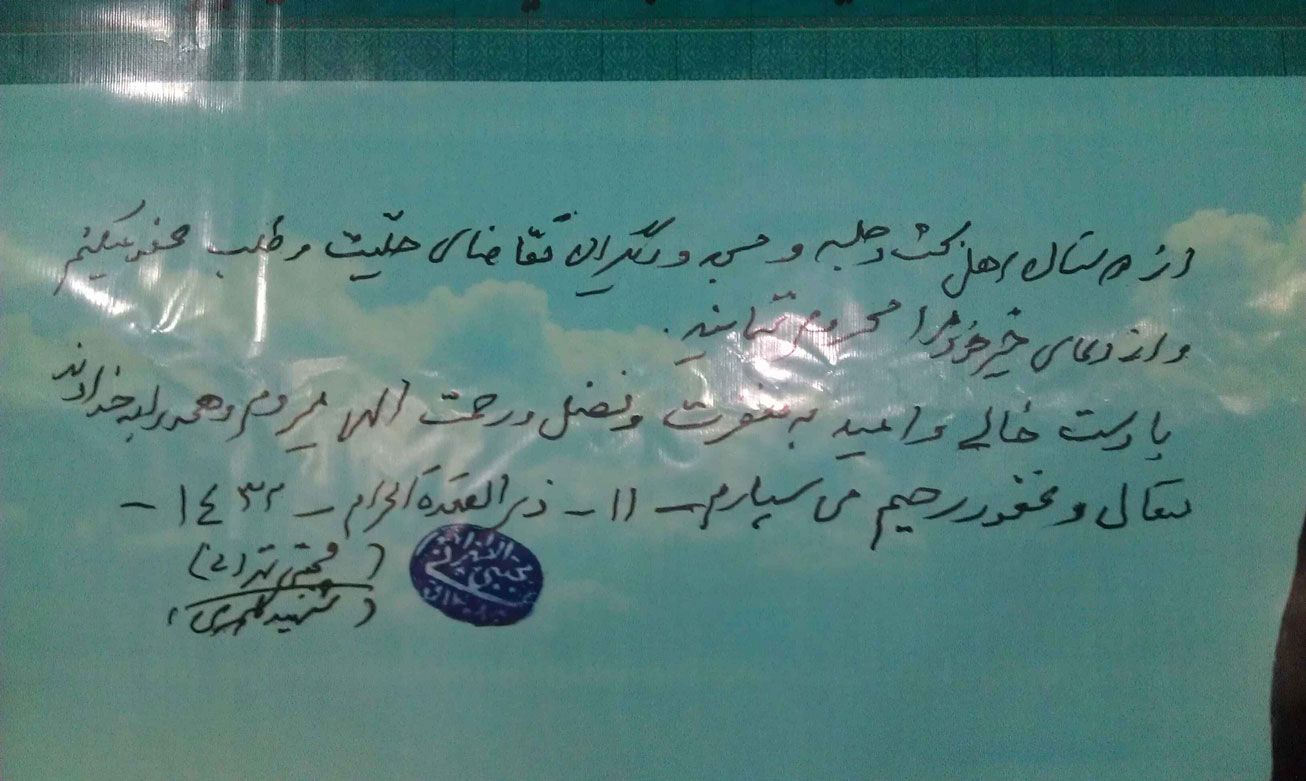 از دوستان اهل بحث و جلسه و مسجد و دیگران تقاضای حلّیت و طلب عفو میکنم
و از دعای خیر خود مرا محروم ننمایند.
با دست خالی و امید به مغفرت و فضل و رحمت الهی میروم و همه را به خداوند
متعال و غفور رحیم می سپارم - ۱۱ - ذی القعدة الحرام - ۱٤۳۲ -
(مجتبی تهرانی)
(شهید کلهری)